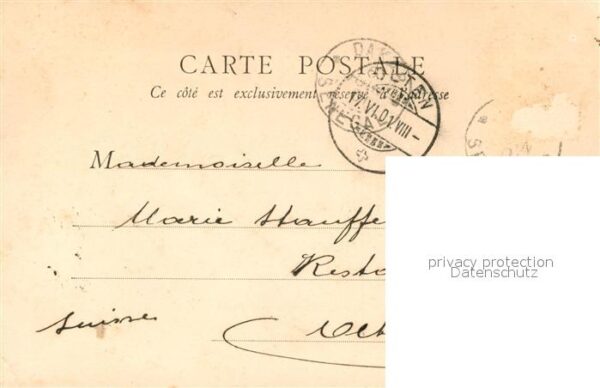 CARTE POSTALE
Ce côté est exclusivement réservé à l'adresse
17.VI.01.VIII–
Mademoiselle
Marie Stauffe
Resta
Suisse
privacy protection
Datenschutz